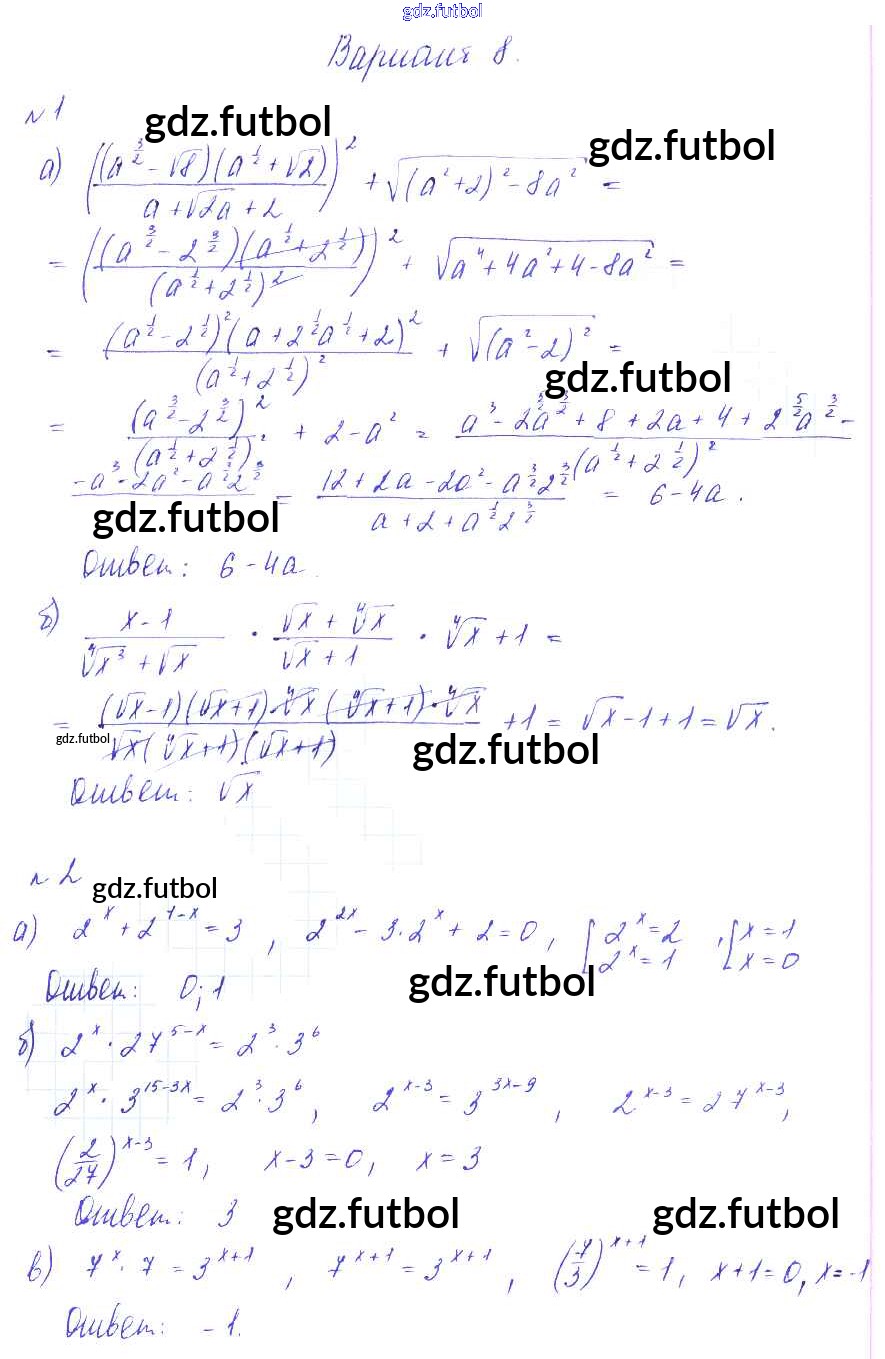 gdz.futbol
Вариант 8.
№1
gdz.futbol
gdz.futbol
а) (((a^{3/2} - √8)(a^{1/2} + √2)) / (a + √(2a) + 2))^2 + √((a^2+2)^2 - 8a^2) =
= (((a^{3/2} - 2^{3/2})(a^{1/2} + 2^{1/2})) / (a^{1/2} + 2^{1/2})^2)^2 + √(a^4 + 4a^2 + 4 - 8a^2) =
= ((a^{1/2} - 2^{1/2})^2 (a + 2^{1/2}a^{1/2} + 2)^2) / (a^{1/2} + 2^{1/2})^2 + √((a^2-2)^2) =
gdz.futbol
= (a^{3/2} - 2^{3/2})^2 / (a^{1/2} + 2^{1/2})^2 + 2 - a^2 = (a^3 - 2^{5/2}a^{3/2} + 8 + 2a + 4 + 2^{5/2}a^{3/2} -
- a^3 - 2a^2 - a^{3/2}2^{3/2}) / (a^{1/2} + 2^{1/2})^2 = (12 + 2a - 2a^2 - a^{3/2}2^{3/2}) / (a + 2 + a^{1/2}2^{3/2}) = 6 - 4a.
gdz.futbol
Ответ: 6 - 4a.
б) (x-1) / (∜x^3 + √x) · (√x + ∜x) / (√x + 1) · ∜x + 1 =
= ((√x-1)(√x+1)·∜x(∜x+1)·∜x) / (√x(∜x+1)(√x+1)) + 1 = √x - 1 + 1 = √x.
gdz.futbol
gdz.futbol
Ответ: √x
№2
gdz.futbol
а) 2^x + 2^{1-x} = 3, 2^{2x} - 3·2^x + 2 = 0, [2^x = 2 2^x = 1, [x = 1 x = 0
gdz.futbol
Ответ: 0; 1
б) 2^x · 27^{5-x} = 2^3 · 3^6
2^x · 3^{15-3x} = 2^3 · 3^6, 2^{x-3} = 3^{3x-9}, 2^{x-3} = 27^{x-3},
(2/27)^{x-3} = 1, x-3 = 0, x = 3
Ответ: 3
gdz.futbol
gdz.futbol
в) 7^x · 7 = 3^{x+1}, 7^{x+1} = 3^{x+1}, (7/3)^{x+1} = 1, x+1 = 0, x = -1
Ответ: -1.